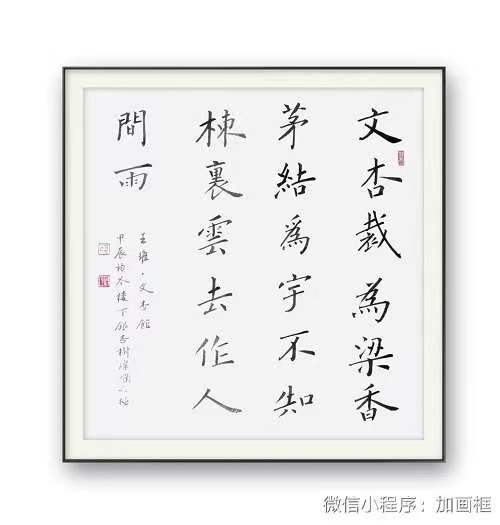 文杏裁為梁香
茅結爲宇不知
棟裏雲去作人
間雨
王維·文杏館
甲辰初冬樓下銀杏樹
微信小程序：加画框